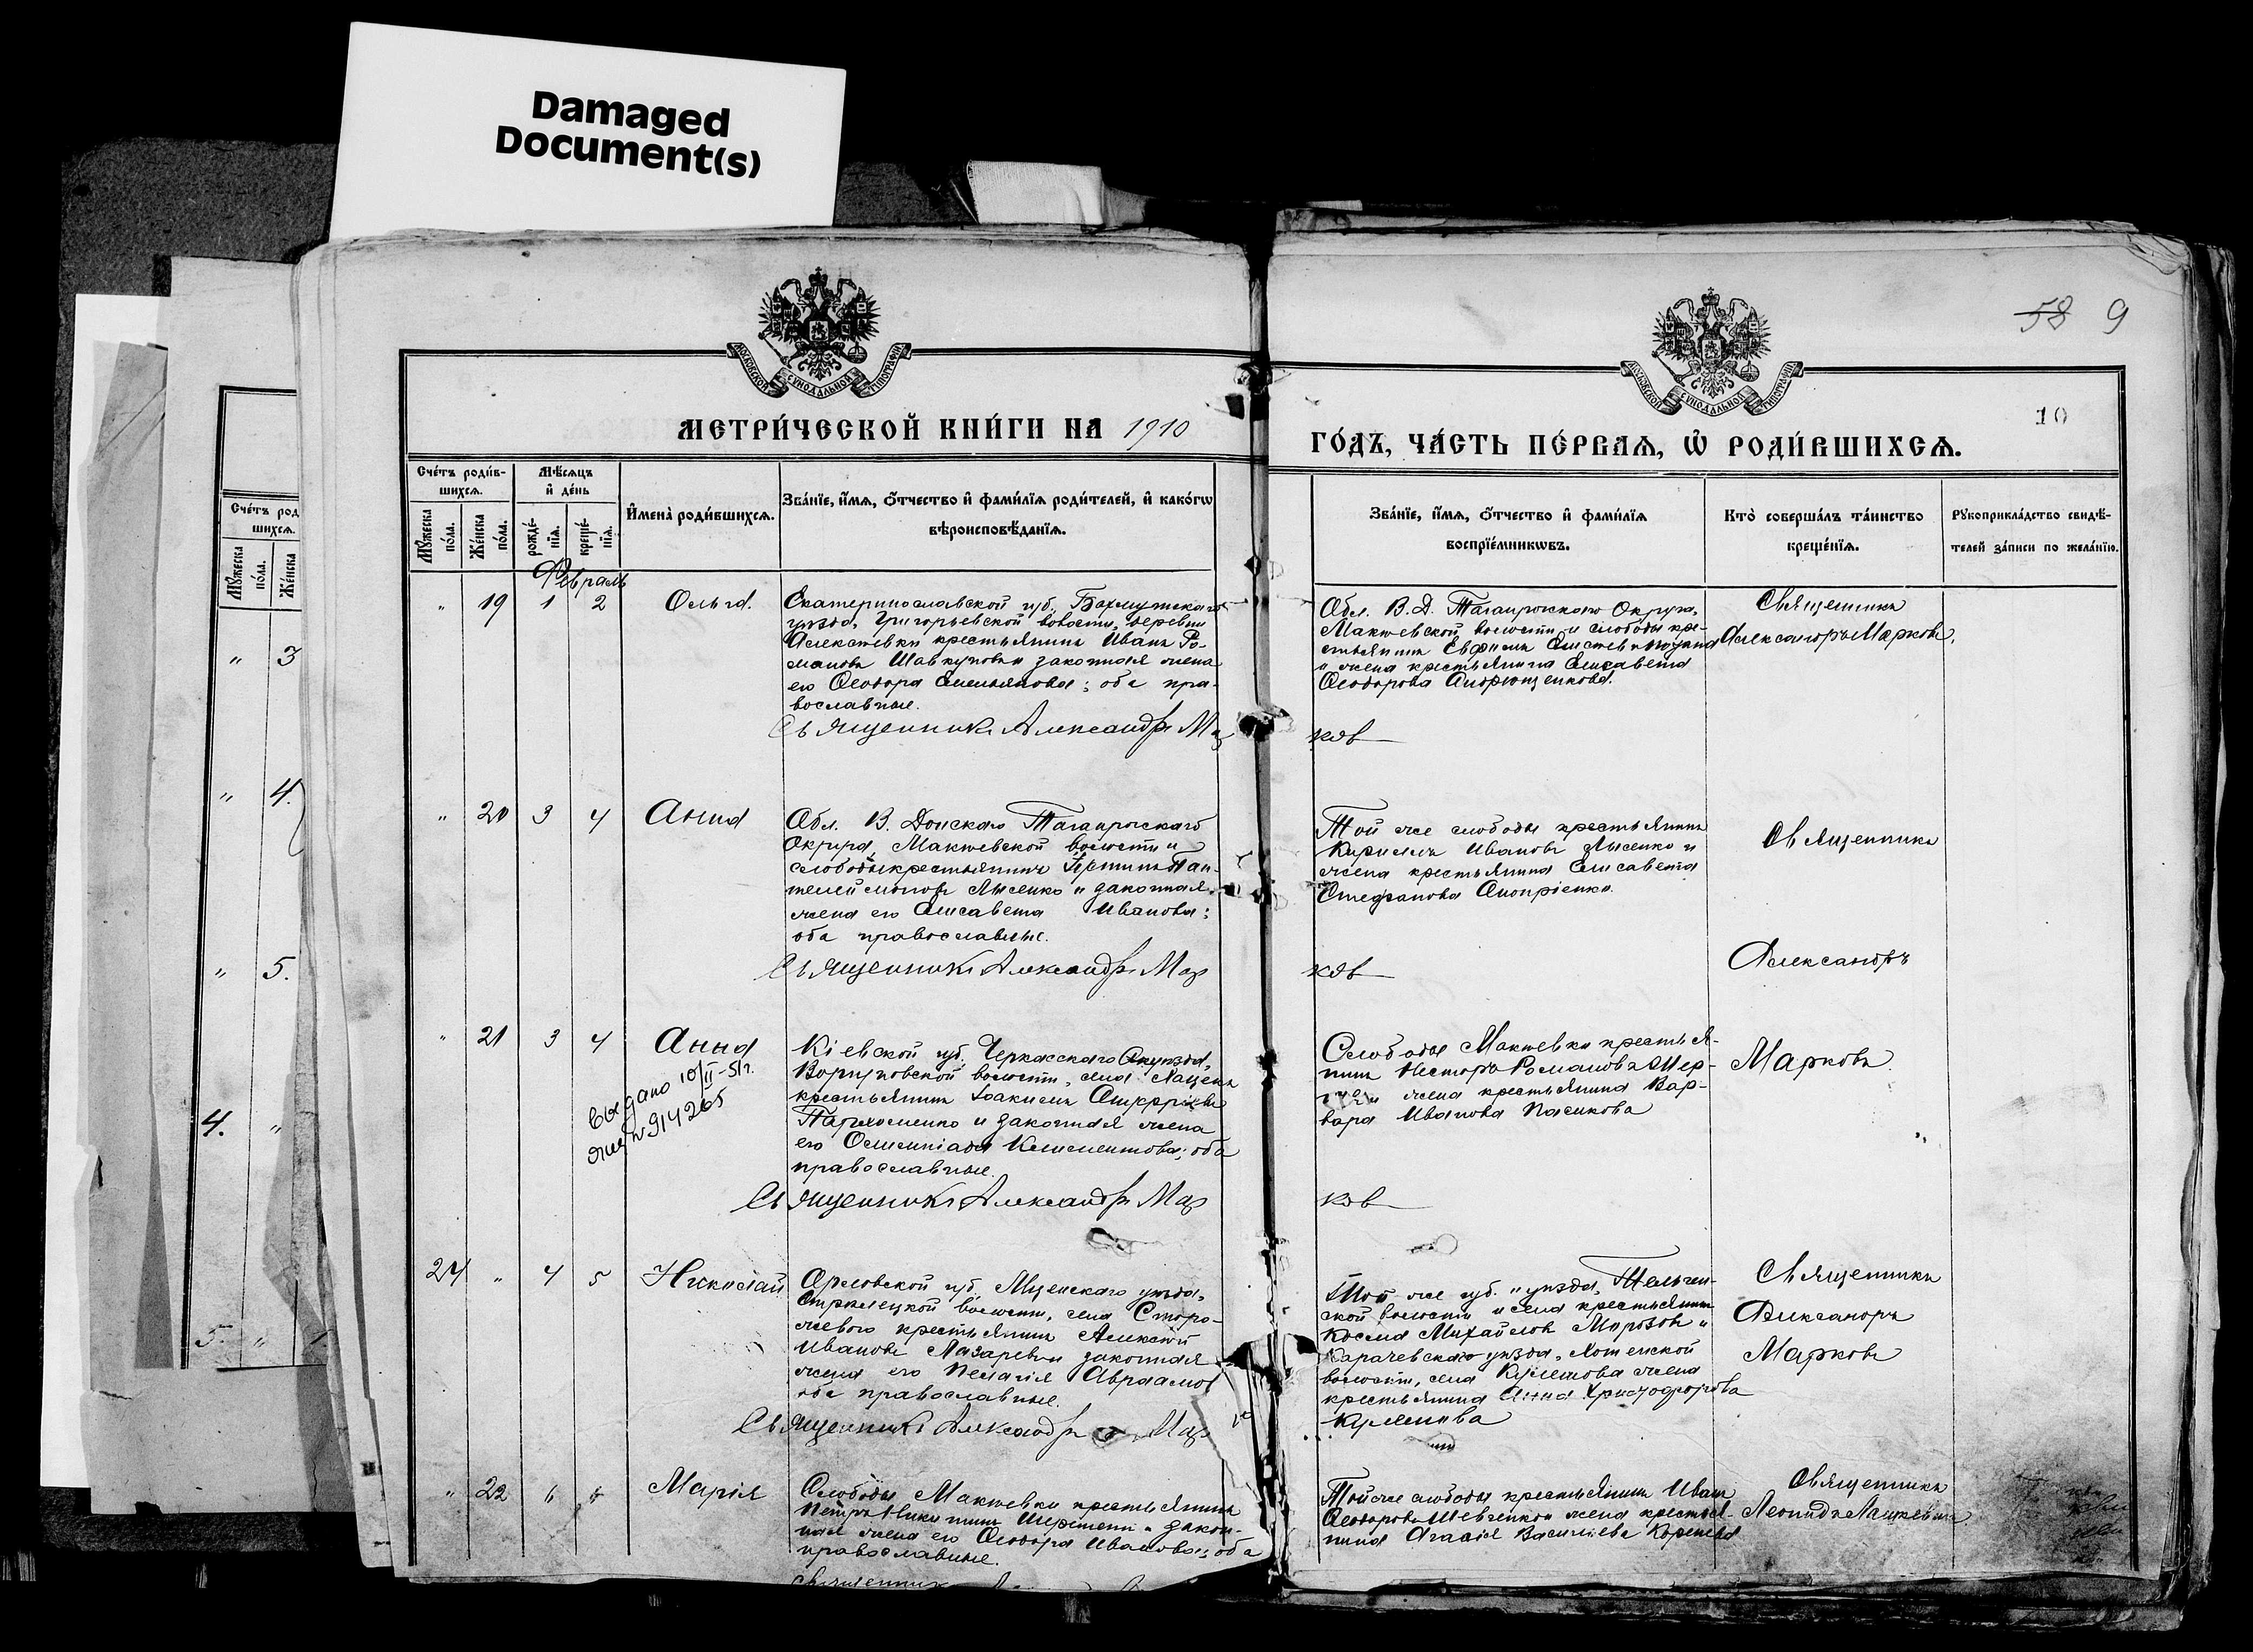 Damaged
Document(s)
58 9
10
МОСКОВСКОЙ СУНОДАЛЬНОЙ ТИПОГРАФІИ
МОСКОВСКОЙ СУНОДАЛЬНОЙ ТИПОГРАФІИ
МЕТРИ́ЧЕСКОЙ КНИ́ГИ НА 1910
ГО́ДЪ, ЧА́СТЬ ПЕ́РВАѦ, Ѡ РОДИ́ВШИХСѦ.
Сче́тъ род
шихсѧ.
Мꙋжеска
по́ла.
Же́нска
" 3
" 4.
" 5.
4. "
5. "
Сче́тъ роди́в-
шихсѧ.
Мꙋжеска
по́ла.
Же́нска
по́ла.
Мѣсѧцъ
и де́нь
рожде́-
нїѧ.
креще́-
нїѧ.
И҆мена̀ роди́вшихсѧ.
Зва́нїе, и҆́мѧ, о҆́тчество и҆ фами́лїѧ роди́телей, и҆ како́гѡ
вѣроисповѣ́данїѧ.
Зва́нїе, и҆́мѧ, о҆́тчество и҆ фами́лїѧ
воспрїе́мникѡвъ.
Кто̀ соверша́лъ та́инство
креще́нїѧ.
Рꙋкоприкла́дство свидѣ́-
телей за́писи по жела́нїю.
Февраль
" 19 1 2 Ольга.
Екатеринославской губ. Бахмутскаго
уѣзда, Григорьевской волости, деревни
Алексѣевки крестьянинъ Иванъ Ро-
мановъ и законная жена
его Ѳеодора Емельянова; оба пра-
вославные.
Священникъ Александръ Мар
ковъ
Обл. В. Д. Таганрогскаго Округа,
Макѣевской волости и слободы кре-
стьянинъ Евфимъ
и жена крестьянина Елисавета
Ѳеодорова
Священникъ
Александръ Марковъ.
" 20 3 4 Анна
Обл. В. Донскаго Таганрогскаго
Округа, Макѣевской волости и
слободы крестьянинъ Пан-
телеимоновъ Лысенко и законная
жена его Елисавета Иванова;
оба православные.
Священникъ Александръ Мар
ковъ
Той же слободы крестьянинъ
Кириллъ Ивановъ Лысенко и
жена крестьянина Елисавета
Стефанова Оноприенко.
Священникъ
Александръ
Марковъ.
" 21 3 4 Анна
Выдано 10/II-51г.
914265
Кіевской губ. Черкасскаго уѣзда,
волости, села
крестьянинъ Іоакимъ
Пархоменко и законная жена
его Олимпіада Климентова; оба
православные.
Священникъ Александръ Мар
ковъ
Слободы Макѣевки крестья-
нинъ Несторъ Романовъ
жена крестьянина Вар-
вара Иванова Пасикова
24 " 4 5 Николай
Орловской губ. Мценскаго уѣзда,
Стрѣлецкой волости, села Сторо-
жевого крестьянинъ Алексѣй
Ивановъ Лазаревъ и законная
жена его Пелагія Авраамов
оба православные.
Священникъ Александръ Мар
Той же губ. и уѣзда, Тельчен-
ской волости и села крестьянинъ
Косма Михайловъ Морозовъ и
Карачевскаго уѣзда,
волости, села жена
крестьянина Анна Христофорова
Священникъ
Александръ
Марковъ
" 22 6 Марія
Слободы Макѣевки крестьянинъ
Петръ Никитинъ и закон-
ная жена его Ѳеодора Иванова; оба
православные.
Священникъ
Той же слободы крестьянинъ Иванъ
Ѳеодоровъ Шевченко и жена крестья-
нина Агаѳія Васильева
Священникъ
Леонидъ